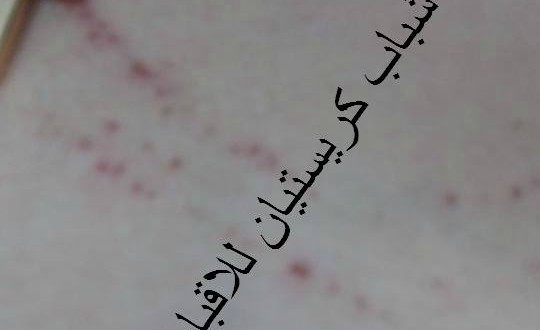 شباب كريستيان للاقبا